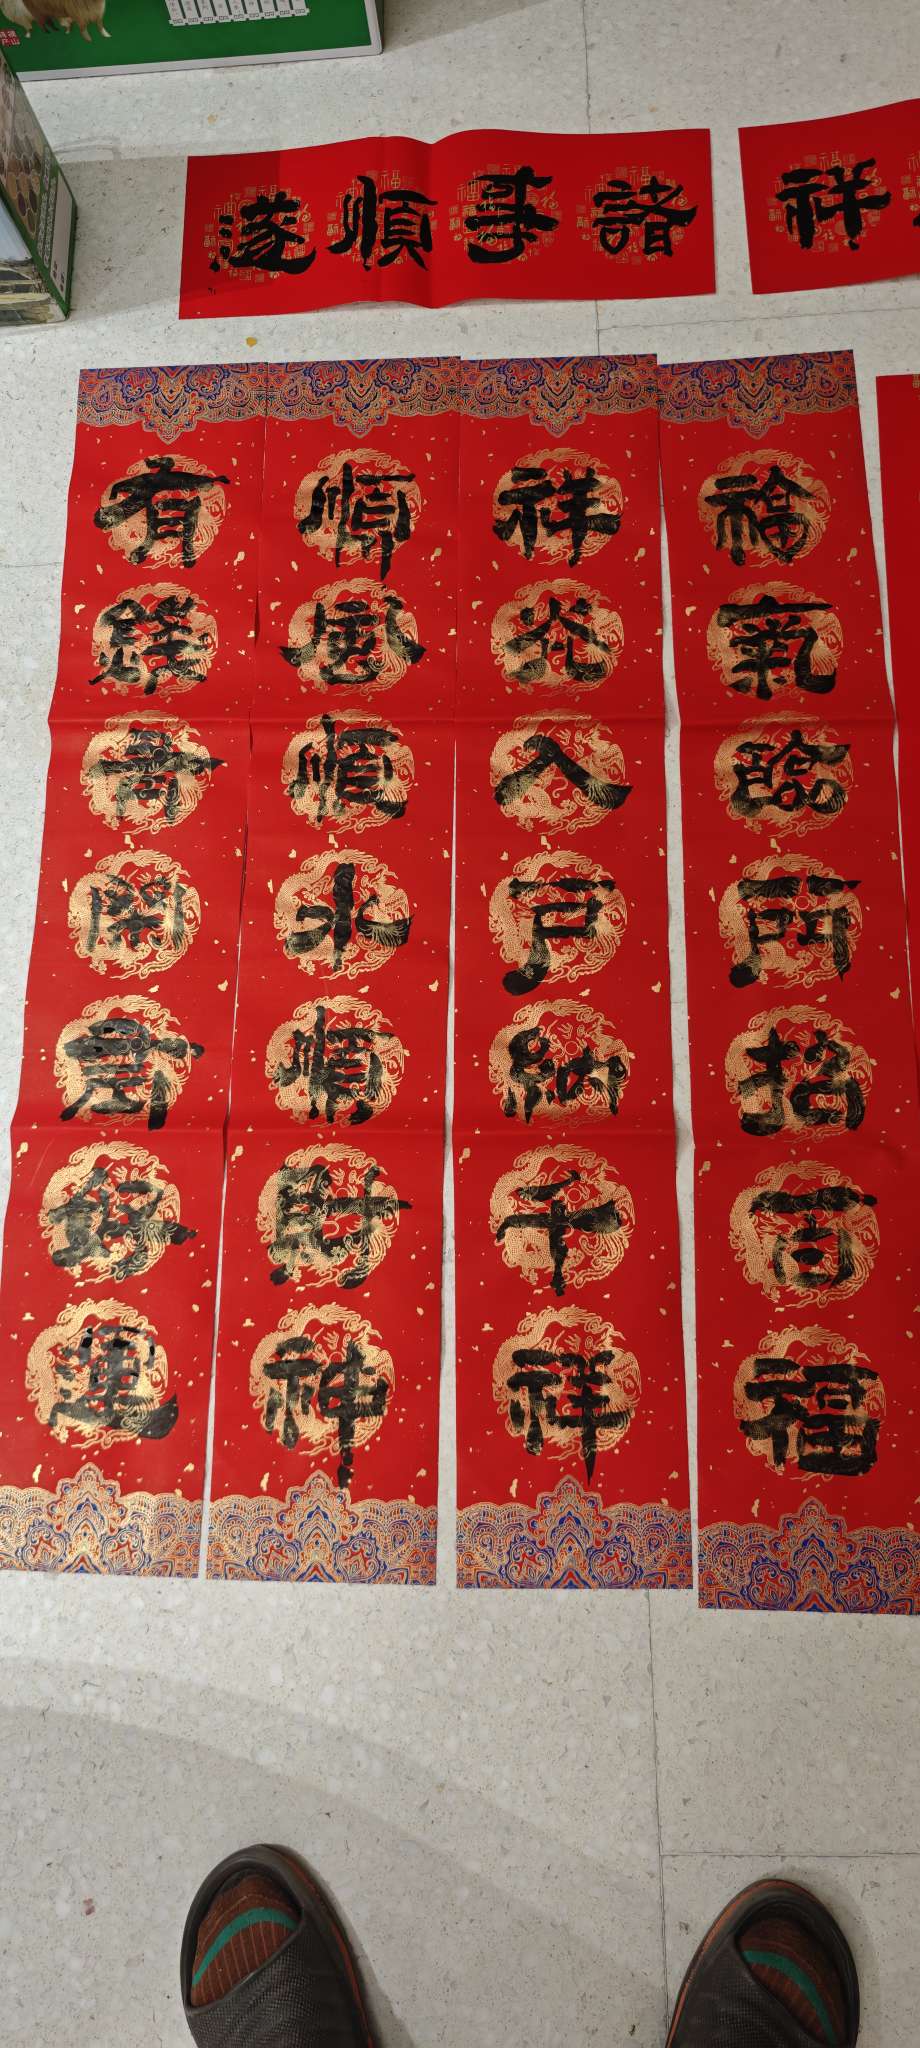 祥
諸事順遂
福氣臨門招百福
祥光入戶納千祥
順風順水順財神
有錢有閑有好運